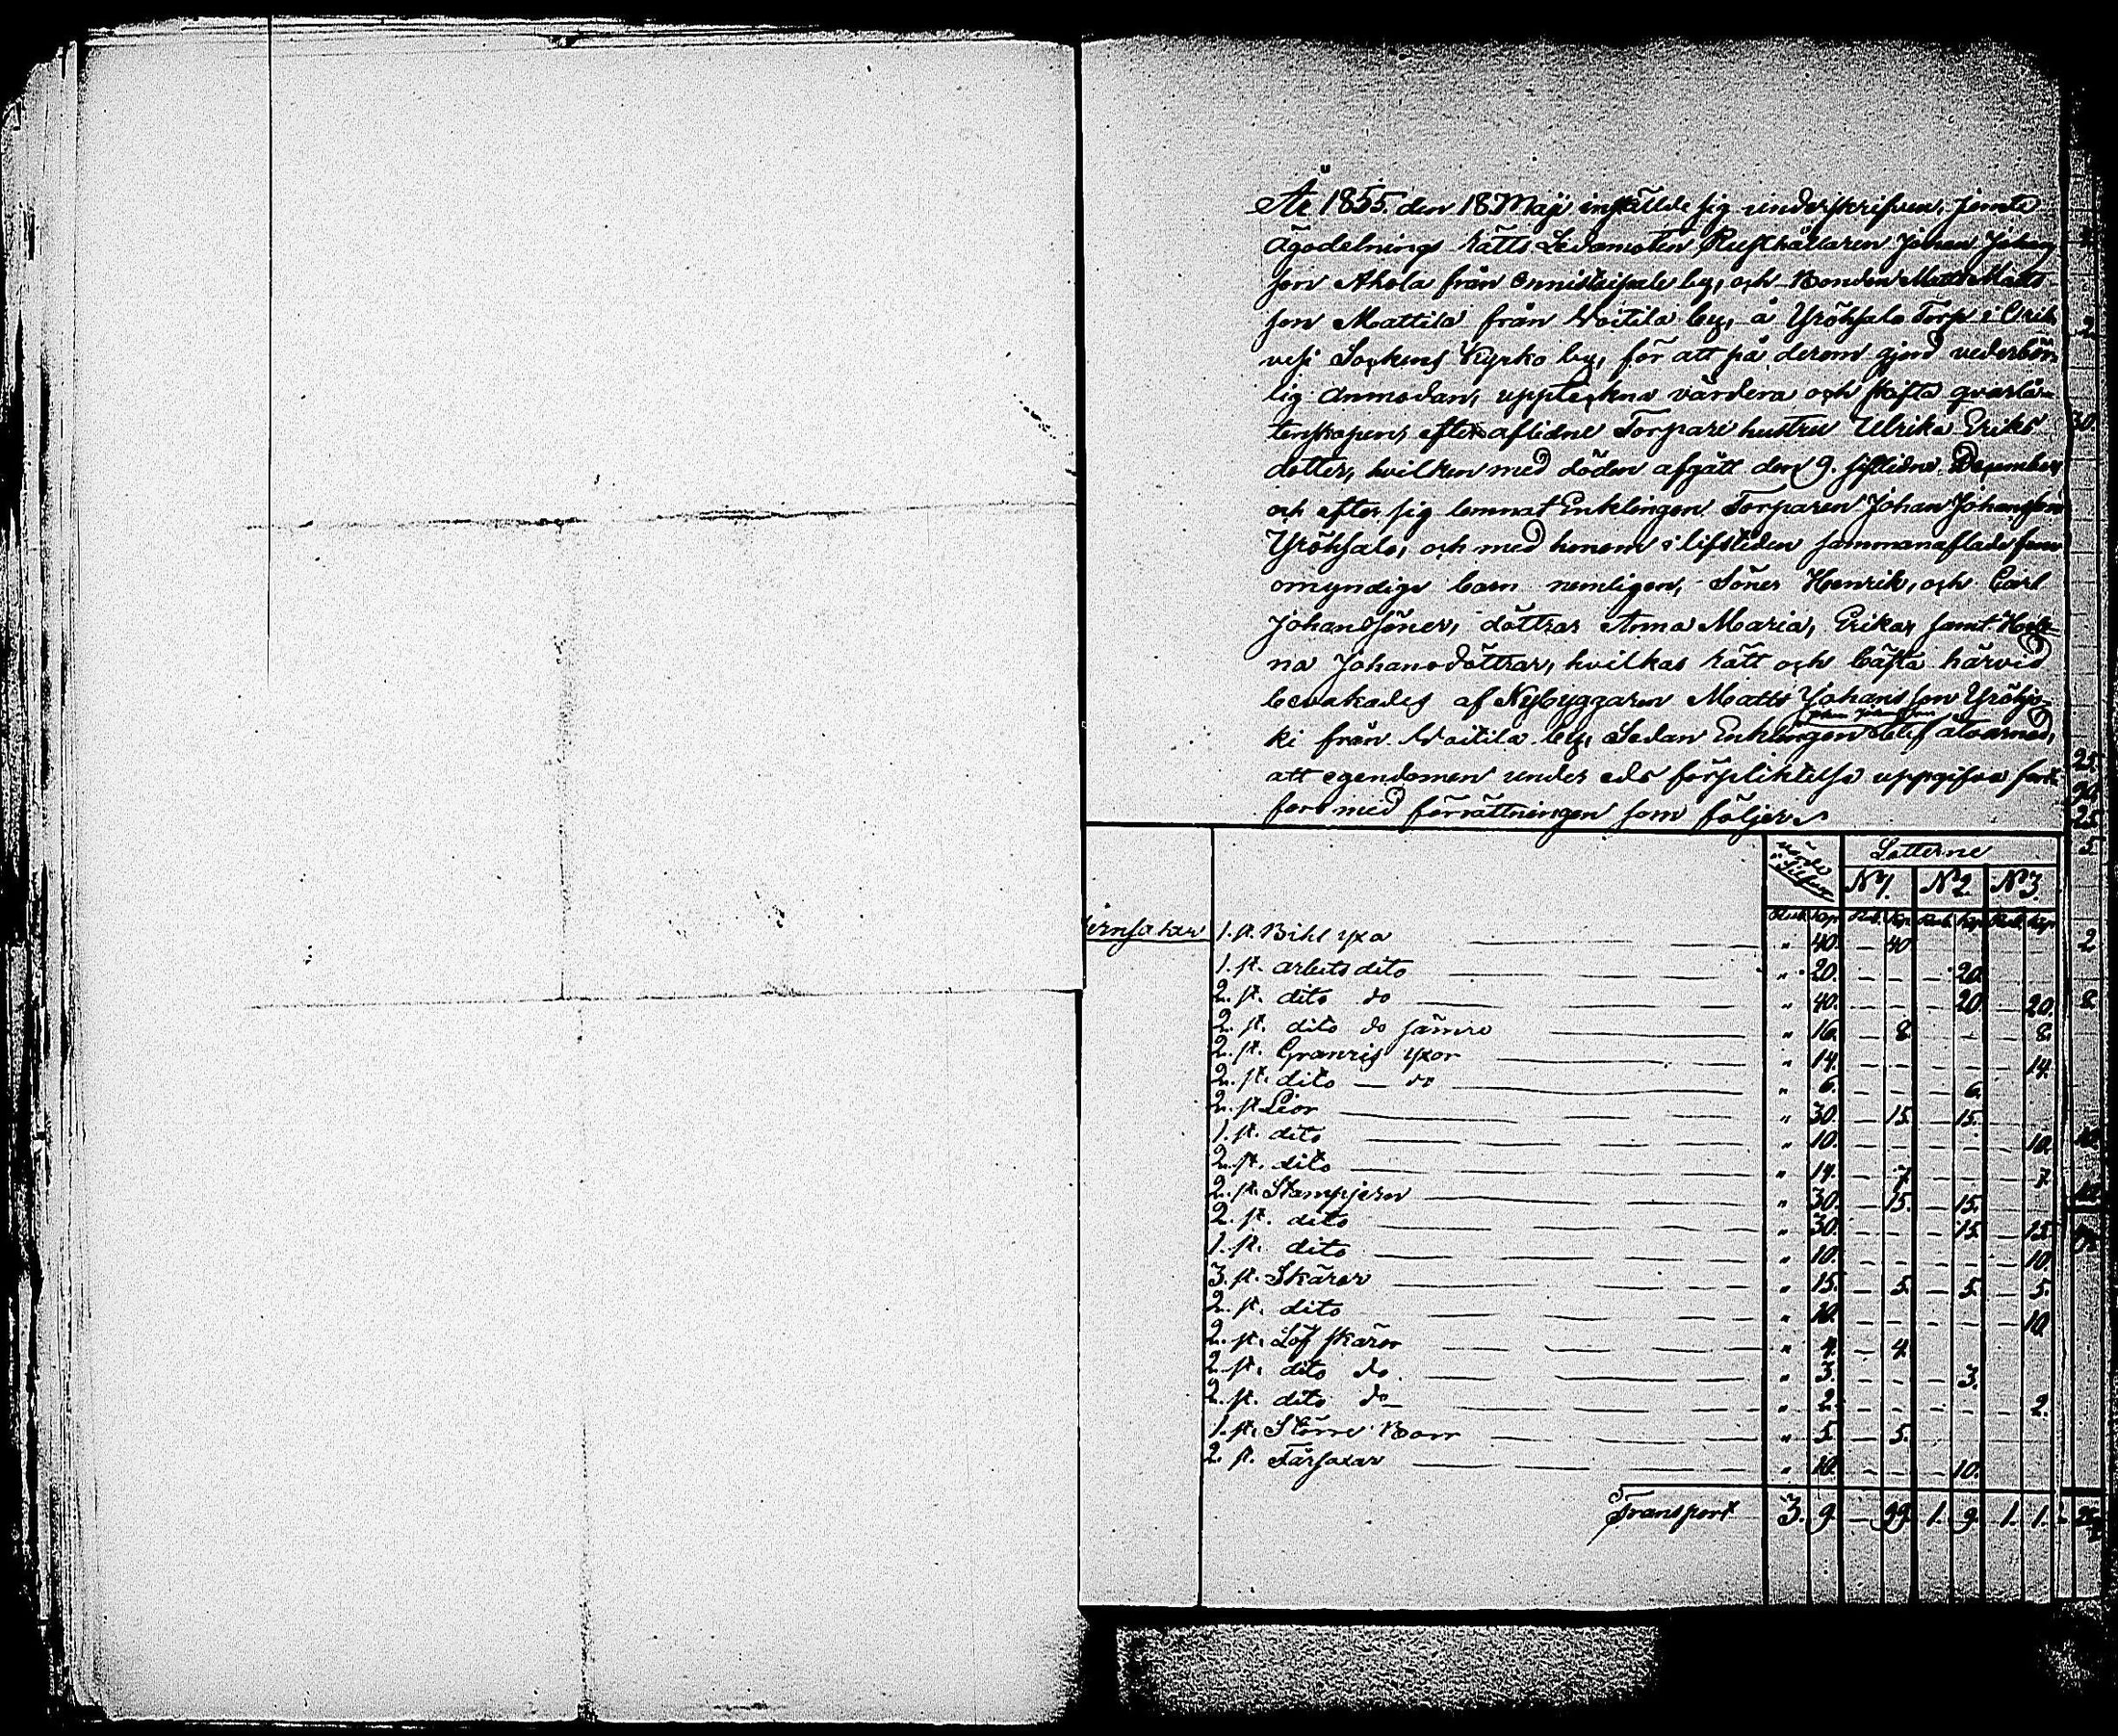 År 1855. den 18 Maji inställde sig underskrifven, jemte
Ägodelnings Rätts Ledamoten Rusthållaren Johan Johans
son Ahola från Onnistaipale by, och Bonden Matts Matts
son Mattila från Woitila by, å Yröhsalo Torp i Orih
vesi Sockens Kyrko by, för att på derom gjord vederbör
lig anmodan, uppteckna värdera och skifta qvarlå-
tenskapen efter aflidne Torpare hustru Ulrika Eriks
dotter, hvilken med döden afgått den 9. sistlidne December
och efter sig lemnat Enklingen Torparen Johan Johansson
Yröhsalo, och med honom i lifstiden sammanaflade fem
omyndige barn nemligen, Söner Henrik, och Carl
Johans Söner, döttrar Anna Maria, Erika, samt Hele-
na Johansdöttrar, hvilkas rätt och bästa härvid
bevakades af Nybyggaren Matts Johansson Yröhjo-
Johan Johansson
ki från Woitila by, Sedan Enklingen blef åtvarnad,
att egendomen under eds förpliktelse uppgifva fort-
fors med förrättningen som följer
värde Silfver Lotterne
N 1. N 2. N 3.
Rub. Kop. Rub. Kop. Rub. Kop. Rub. Kop.
Jernsaker 1. st. Bihl yxa " 40. 40
1. st. arbets dito " 20. 20.
2. st. dito do " 40. 20 20.
2. st. dito do sämre " 16. 8. 8.
2. st. Granris yxor " 14. 14.
2. st. dito do " 6. 6.
2. st. Lior " 30. 15. 15.
1. st. dito " 10. 10.
2. st. dito " 14. 7. 7.
2. st. Stampjern " 30. 15. 15.
2. st. dito " 30. 15. 15.
1. st. dito " 10. 10.
3. st. Skäror " 15. 5. 5. 5.
2. st. dito " 10. 10.
2. st. Löf skäror " 4. 4.
2. st. dito do " 3. 3.
2. st. dito do " 2. 2.
1. st. Större Borr " 5. 5.
2. st. Fårsaxar " 10. 10.
Transport 3. 9. 99. 1. 9. 1. 1.